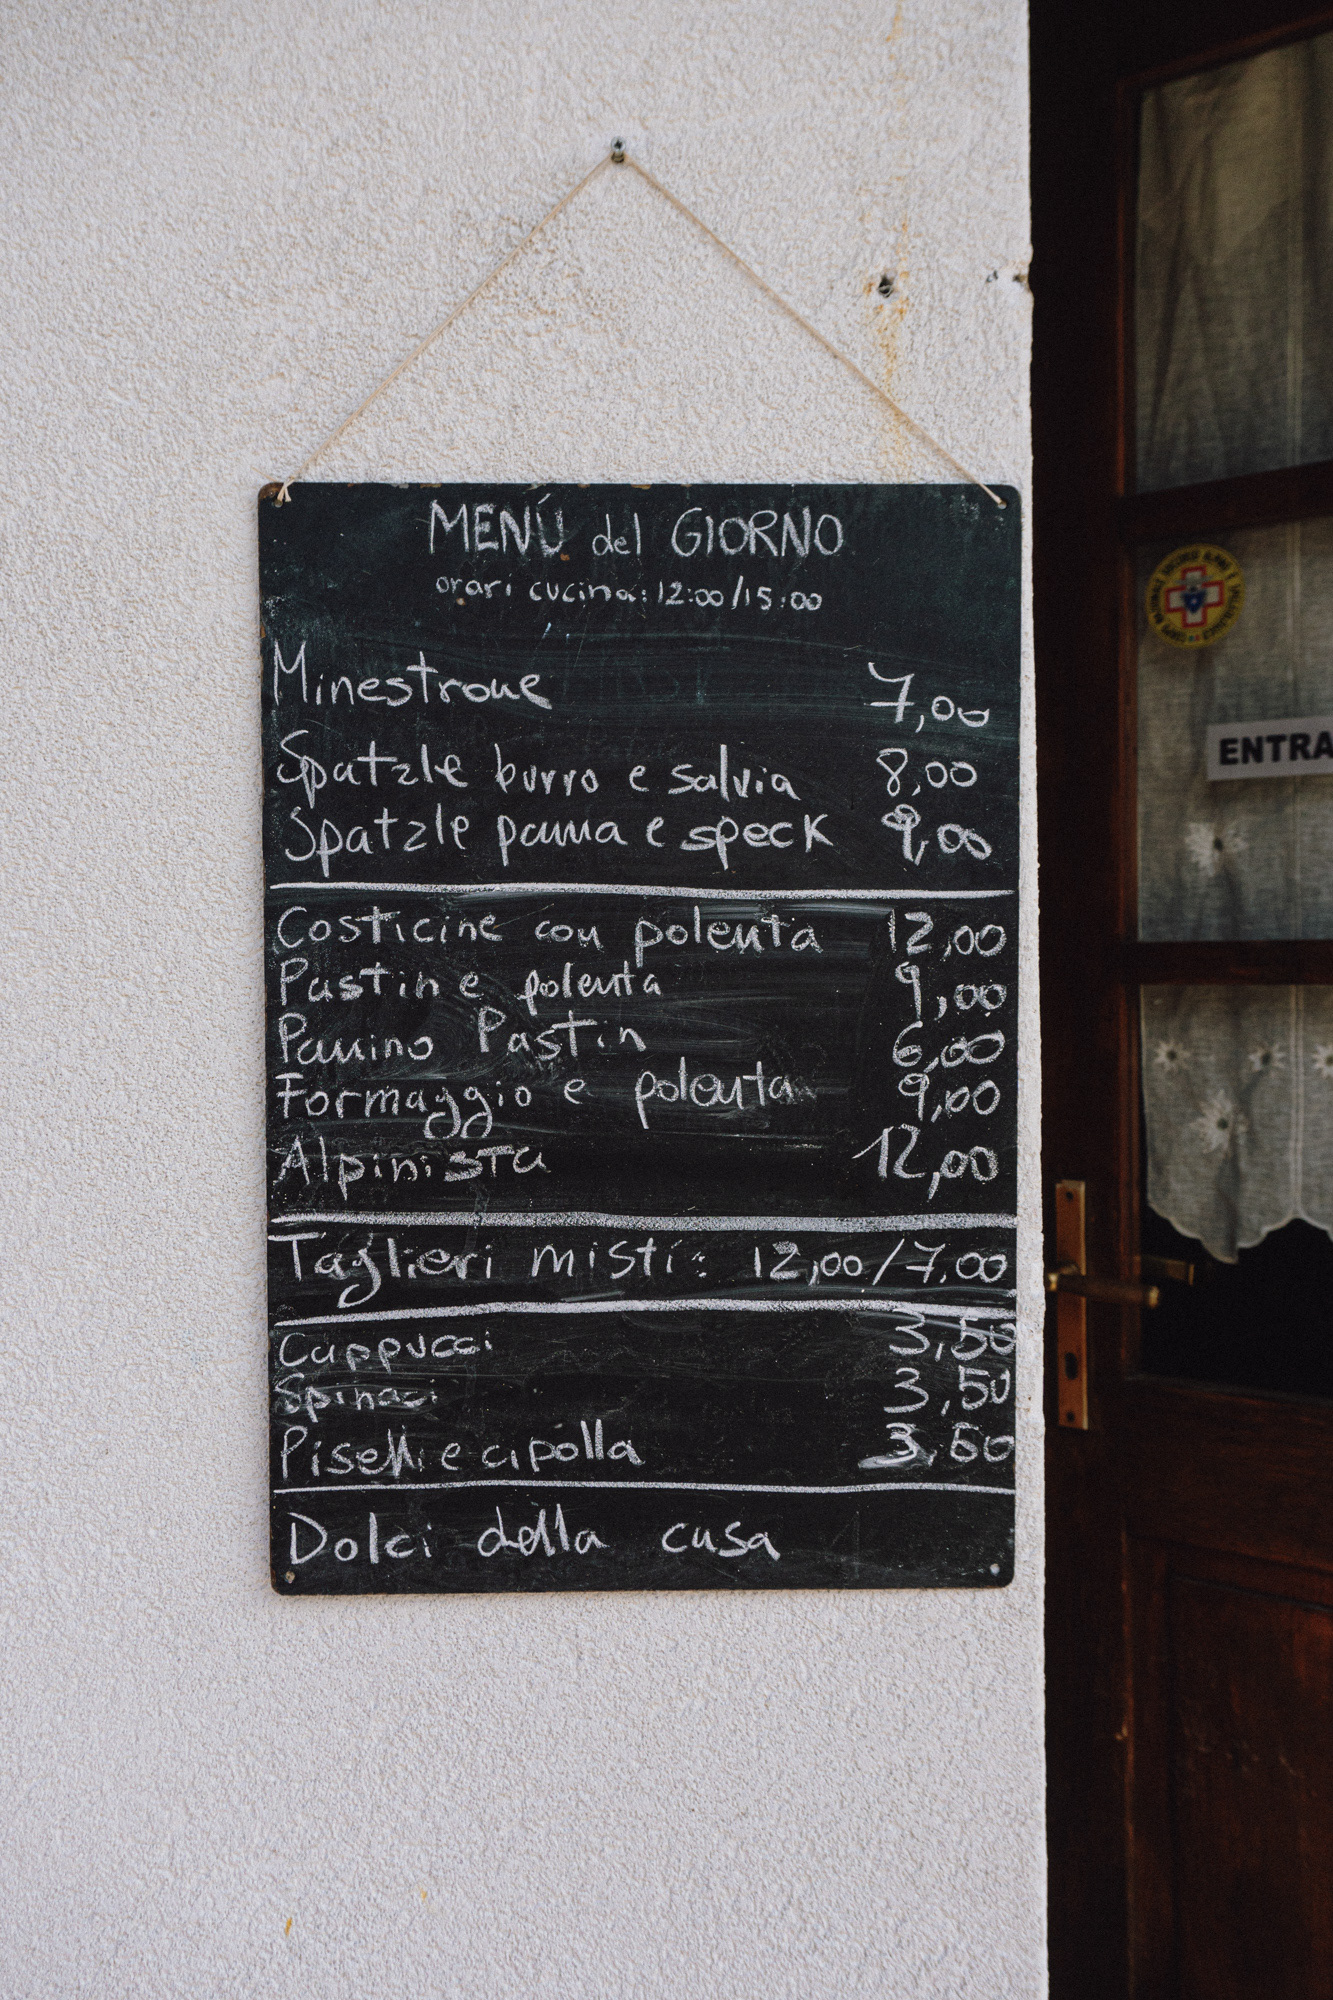 MENÚ del GIORNO
orari cucina: 12:00/15:00
Minestrone 7,00
Spatzle burro e salvia 8,00
Spatzle panna e speck 9,00
Costicine con polenta 12,00
Pastin e polenta 9,00
Panino Pastin 6,00
Formaggio e polenta 9,00
Alpinista 12,00
Taglieri misti: 12,00/7,00
Cappucci 3,50
Spinaci 3,50
Piselli e cipolla 3,50
Dolci della casa
ENTRA